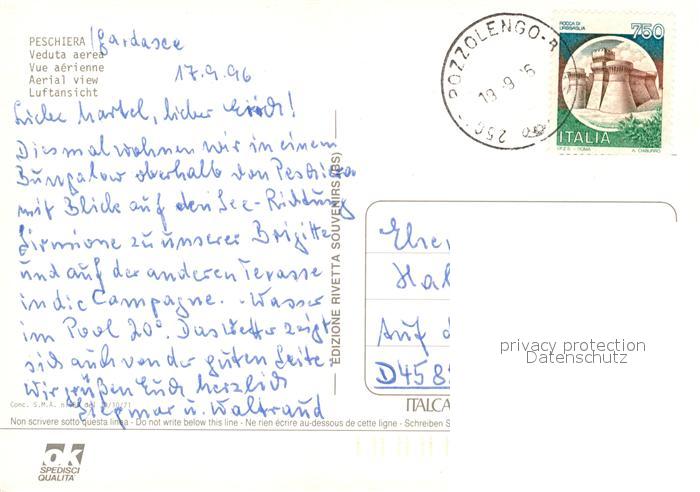 PESCHIERA/Gardasee
Veduta aerea
Vue aérienne
Aerial view
Luftansicht
17.9.96
Liebe Martel, lieber Erich!
Diesmal wohnen wir in einem
Bungalow oberhalb von Peschiera
mit Blick auf den See-Richtung
Sirmione zu unserer Brigitte
und auf der anderen Terasse
in die Campagne. Wasser
im Pool 20°. Das Wetter zeigt
sich auch von der guten Seite.
Wir grüßen Euch herzlich
Siegmar u. Waltraud
Conc. S.M.A.
Non scrivere sotto questa linea - Do not write below this line - Ne rien écrire au-dessous de cette ligne - Schreiben S
ok
SPEDISCI
QUALITA'
EDIZIONE RIVETTA SOUVENIRS (BS)
POZZOLENGO
ROCCA DI
URBISAGLIA
750
ITALIA
I.P.Z.S. - ROMA
Ehe
Hal
Auf d
D458
ITALCA
privacy protection
Datenschutz